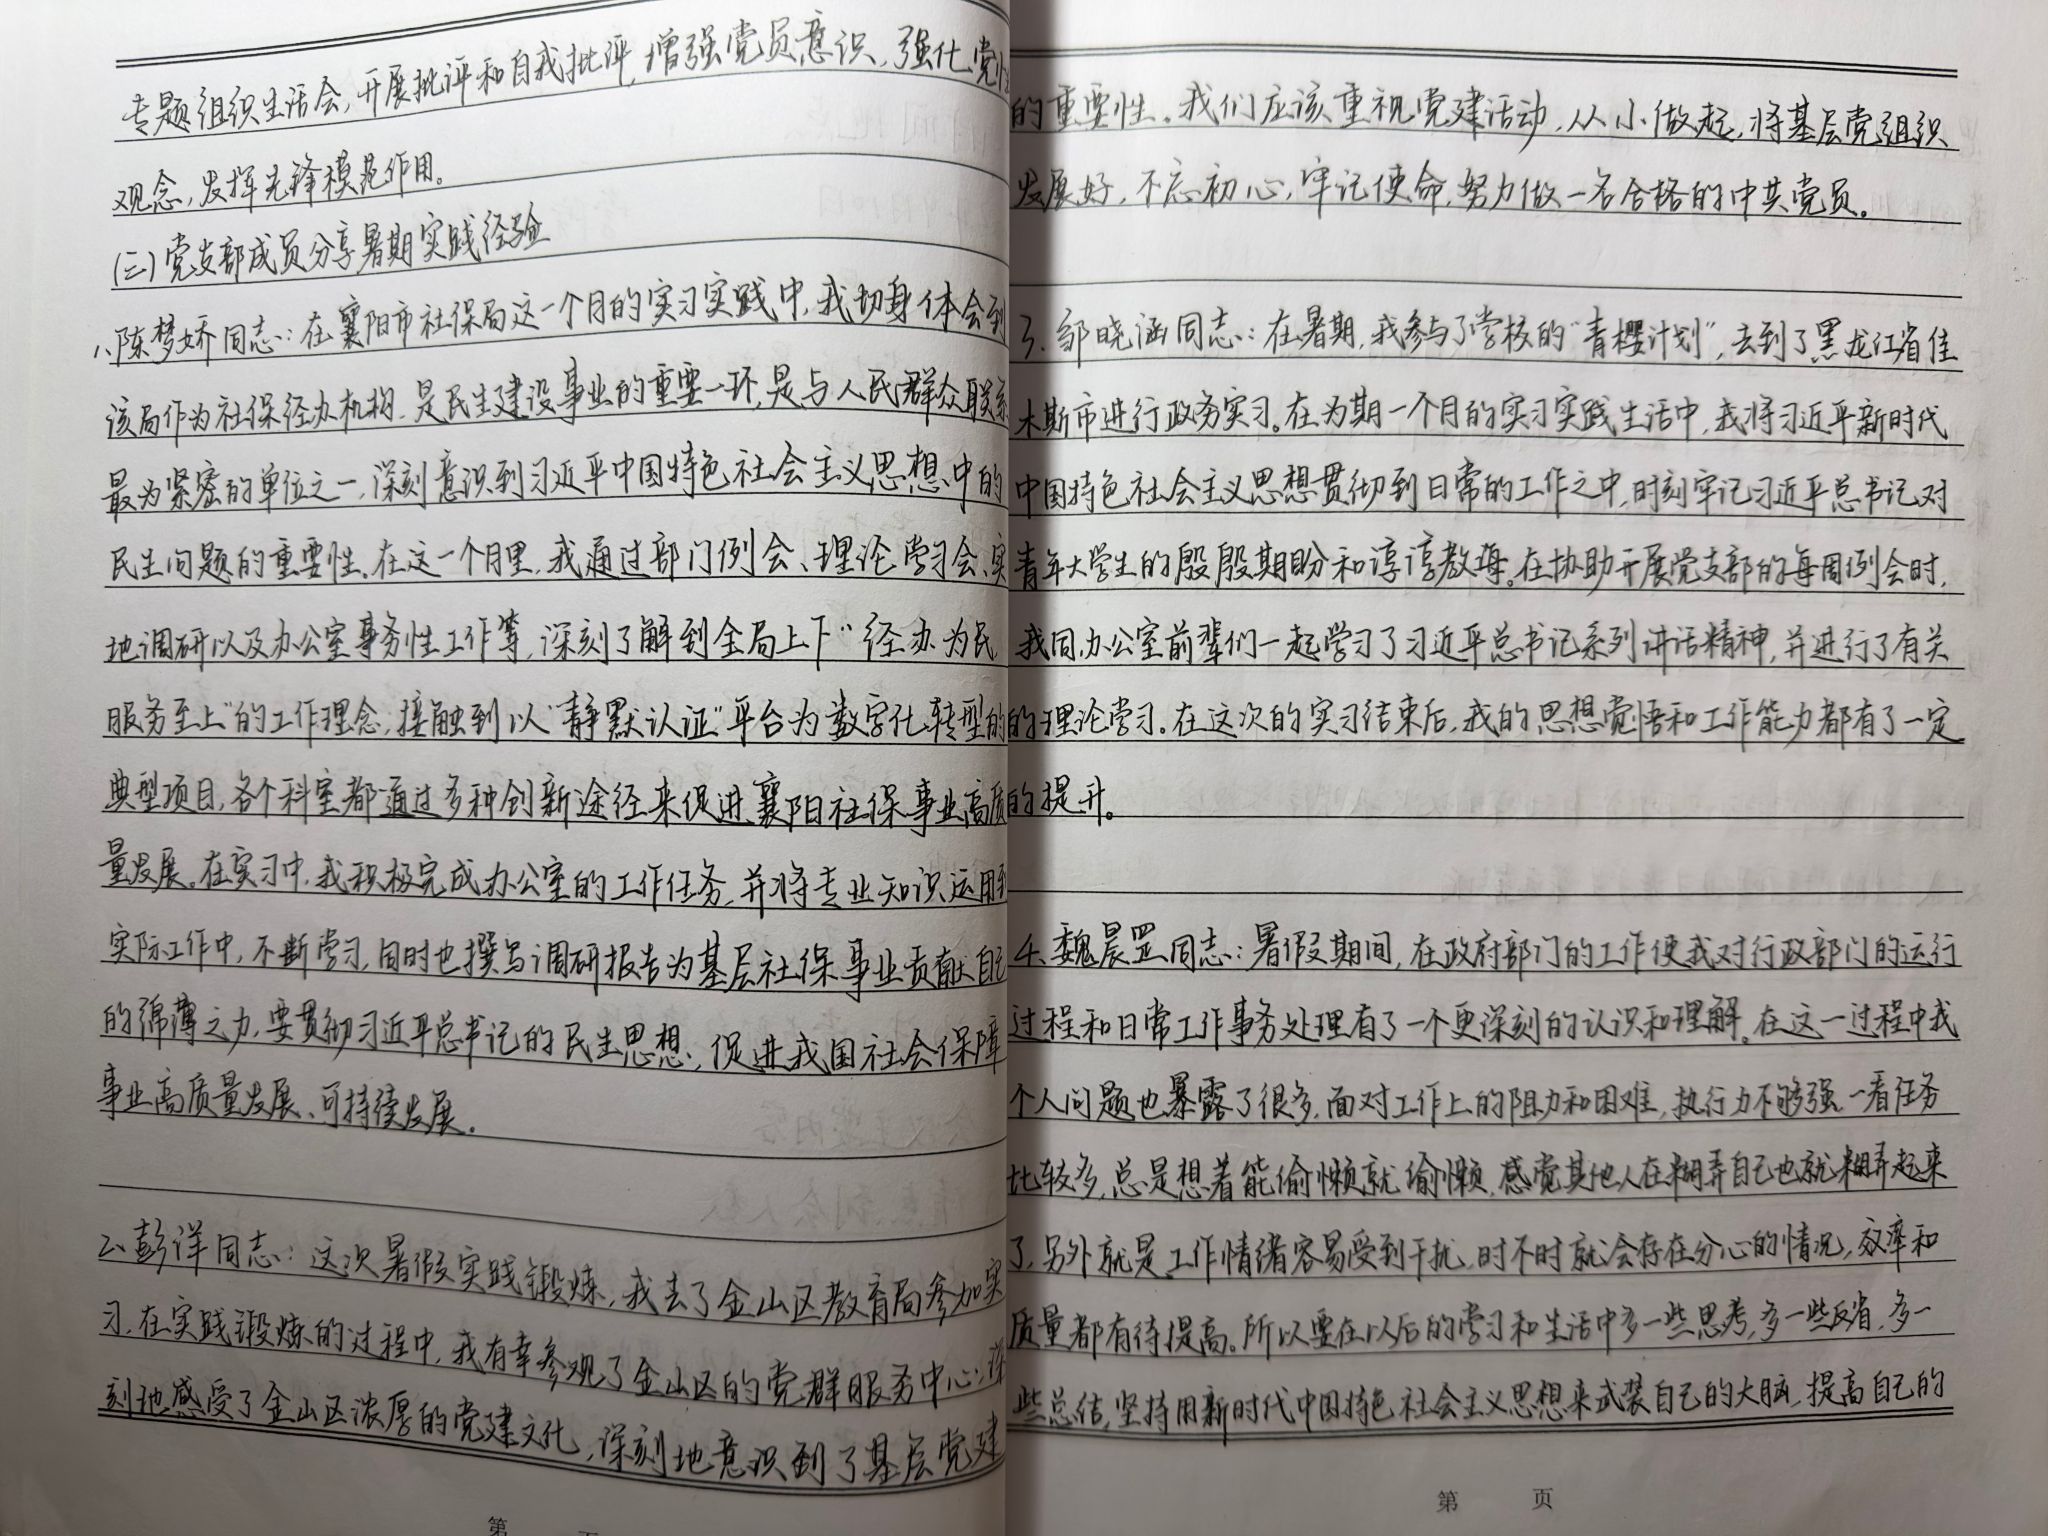 专题组织生活会，开展批评和自我批评，增强党员意识，强化党性
观念，发挥先锋模范作用。
(三)党支部成员分享暑期实践经验
1、陈梦娇同志：在襄阳市社保局这一个月的实习实践中，我切身体会到
该局作为社保经办机构，是民生建设事业的重要一环，是与人民群众联系
最为紧密的单位之一，深刻意识到习近平中国特色社会主义思想中的
民生问题的重要性。在这一个月里，我通过部门例会、理论学习会、实
地调研以及办公室事务性工作等，深刻了解到全局上下“经办为民
服务至上”的工作理念，接触到以“静默认证”平台为数字化转型的
典型项目，各个科室都通过多种创新途径来促进襄阳社保事业高质
量发展。在实习中，我积极完成办公室的工作任务，并将专业知识运用到
实际工作中，不断学习，同时也撰写调研报告为基层社保事业贡献自己
的绵薄之力，要贯彻习近平总书记的民生思想，促进我国社会保障
事业高质量发展、可持续发展。
2、彭洋同志：这次暑假实践锻炼，我去了金山区教育局参加实
习，在实践锻炼的过程中，我有幸参观了金山区的党群服务中心，深
刻地感受了金山区浓厚的党建文化，深刻地意识到了基层党建
第 页
的重要性。我们应该重视党建活动，从小做起，将基层党组织
发展好，不忘初心，牢记使命，努力做一名合格的中共党员。
3、邹晓涵同志：在暑期，我参与了学校的“青樱计划”，去到了黑龙江省佳
木斯市进行政务实习。在为期一个月的实习实践生活中，我将习近平新时代
中国特色社会主义思想贯彻到日常的工作之中，时刻牢记习近平总书记对
青年大学生的殷殷期盼和谆谆教诲。在协助开展党支部的每周例会时，
我同办公室前辈们一起学习了习近平总书记系列讲话精神，并进行了有关
的理论学习。在这次的实习结束后，我的思想觉悟和工作能力都有了一定
的提升。
4、魏晨罡同志：暑假期间，在政府部门的工作使我对行政部门的运行
过程和日常工作事务处理有了一个更深刻的认识和理解。在这一过程中我
个人问题也暴露了很多，面对工作上的阻力和困难，执行力不够强，一看任务
比较多，总是想着能偷懒就偷懒，感觉其他人在糊弄自己也就糊弄起来
了，另外就是工作情绪容易受到干扰，时不时就会存在分心的情况，效率和
质量都有待提高。所以要在以后的学习和生活中多一些思考，多一些反省，多一
些总结，坚持用新时代中国特色社会主义思想来武装自己的大脑，提高自己的
第 页